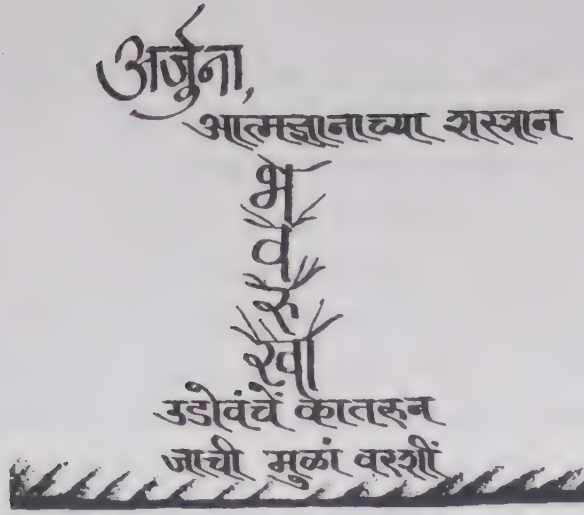 अर्जुना,
आत्मज्ञानाच्या शस्त्रान
भ
व
रु
खा
उडोवंचें कातरून
जाची मुळां वरशीं